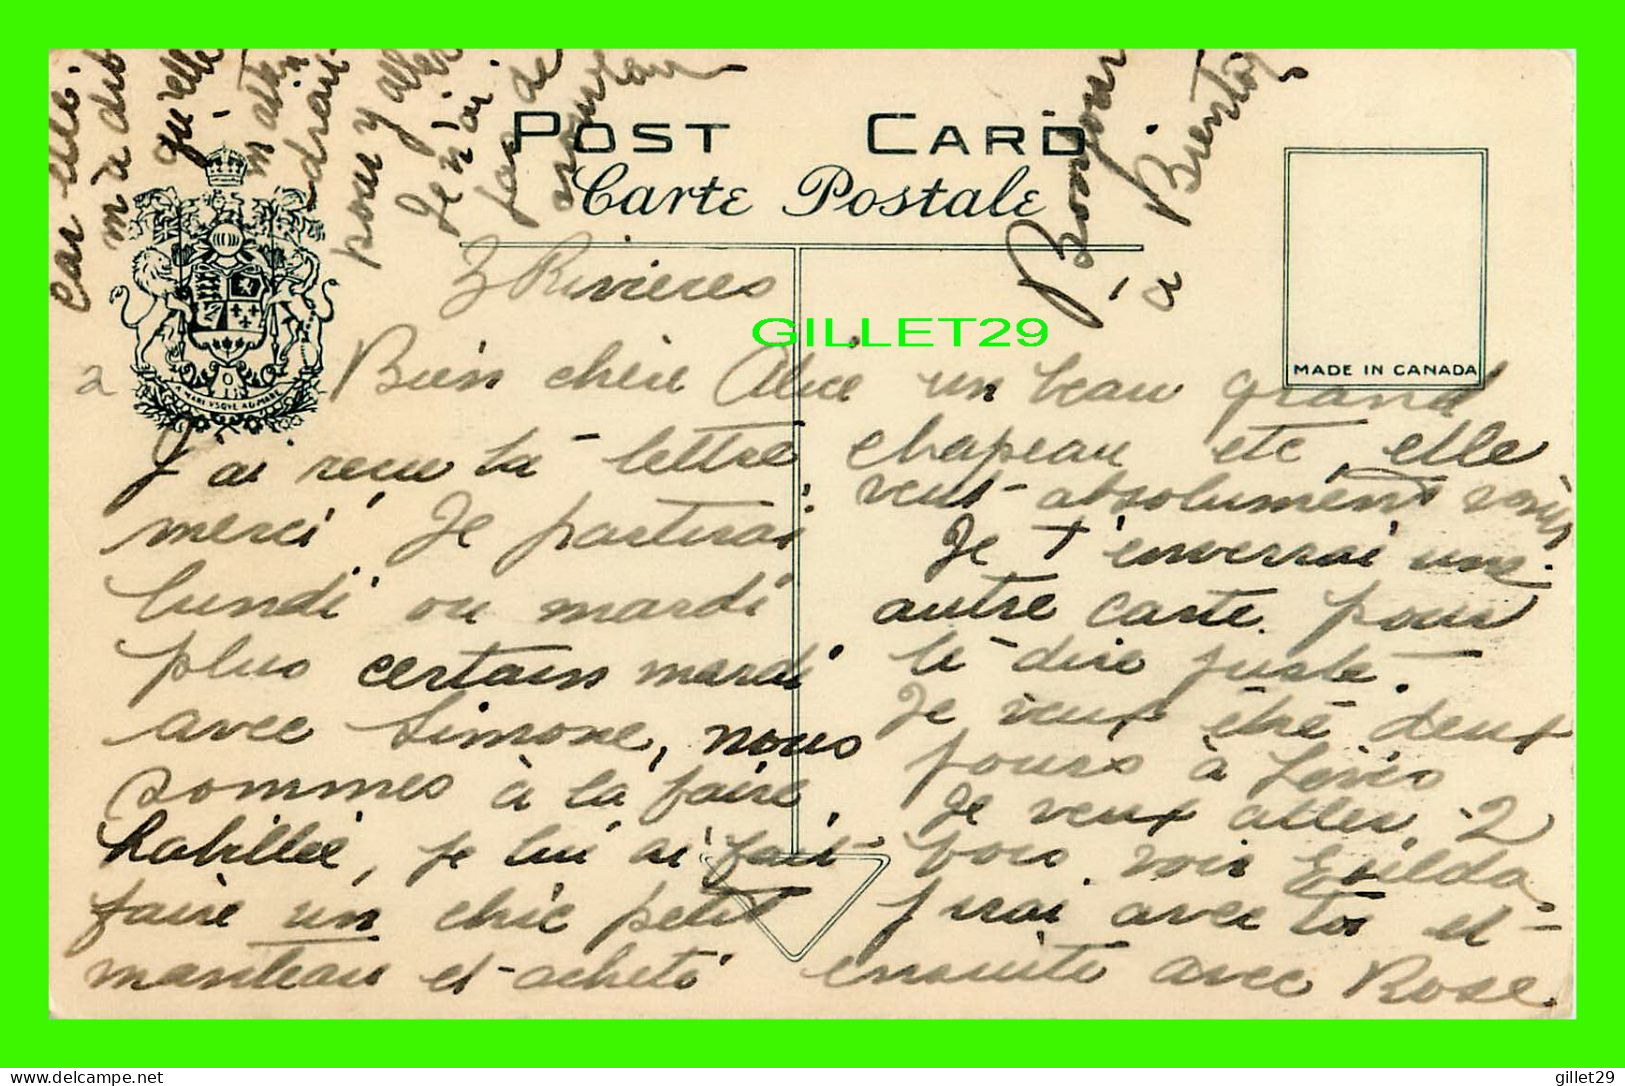 POST CARD
Carte Postale
MADE IN CANADA
A MARI USQUE AD MARE
GILLET29
3 Rivieres
Bien chère Alice
J'ai recu ta lettre
merci Je partirai
lundi ou mardi
plus certain mardi
avec Simone, nous
sommes à la faire
habillée, je lui ai fait
faire un chic petit
manteau et acheté
un beau grand
chapeau etc, elle
veut absolument venir
Je t'enverrai une
autre carte pour
te dire juste.
Je veux être deux
jours à Lévis
Je veux aller 2
fois voir Exilda
J irai avec toi et
ensuite avec Rose.
Car elle
m'a dit
qu'elle
m'att
drait
pour y aller
Je n'ai
pas de
nouveau
Bonjour
à Bientôt
gillet29